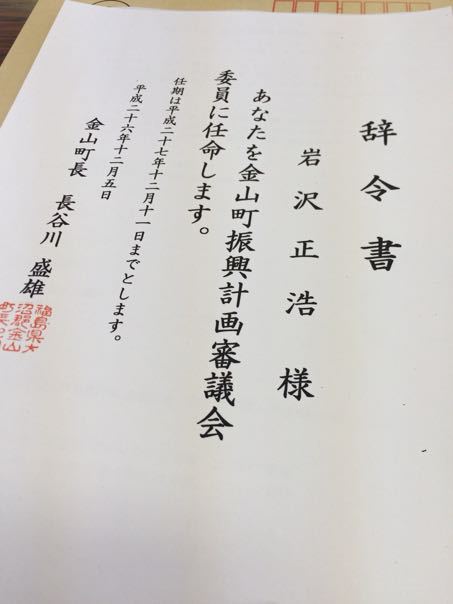 辞令書
岩沢正浩　様
あなたを金山町振興計画審議会
委員に任命します。
任期は平成二十七年十二月十一日までとします。
平成二十六年十二月五日
金山町長　長谷川　盛雄
福島県大
沼郡金山
町長